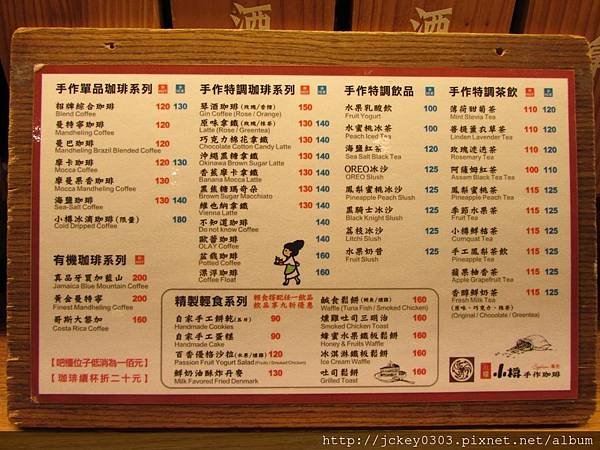 酒
酒
手作單品咖啡系列
招牌綜合咖啡 120 130
Blend Coffee
曼特寧咖啡 120
Mandheling Coffee
曼巴咖啡 120
Mandheling Brazil Blended Coffee
摩卡咖啡 120 130
Mocca Coffee
摩曼黑香咖啡 130
Mocca Mandheling Coffee
海鹽咖啡 130 140
Sea-Salt Coffee
小樽冰滴咖啡(限量) 180
Cold Dripped Coffee
有機咖啡系列
真品牙買加藍山 200
Jamaica Blue Mountain Coffee
黃金曼特寧 200
Finest Mandheling Coffee
哥斯大黎加 160
Costa Rica Coffee
【吧檯位子低消為一佰元】
【咖啡續杯折二十元】
手作特調咖啡系列
琴酒咖啡(玫瑰/香橙) 150
Gin Coffee (Rose / Orange)
原味拿鐵(玫瑰/抹茶) 130 140
Latte (Rose / Greentea)
巧克力棉花拿鐵 130 140
Chocolate Cotton Candy Latte
沖繩黑糖拿鐵 130 140
Okinawa Brown Sugar Latte
香蕉摩卡拿鐵 130 140
Banana Mocca Latte
黑焦糖瑪奇朵 130 140
Brown Sugar Macchiato
維也納拿鐵 130 140
Vienna Latte
不知道咖啡 140
Do not know Coffee
歐蕾咖啡 140
OLAY Coffee
盆栽咖啡 160
Potted Coffee
漂浮咖啡 160
Coffee Float
手作特調飲品
水果乳酸飲 100
Fruit Yogurt
水蜜桃冰茶 125
Peach Iced Tea
海鹽紅茶 120
Sea Salt Black Tea
OREO冰沙 125
OREO Slush
鳳梨蜜桃冰沙 125
Pineapple Peach Slush
黑騎士冰沙 125
Black Knight Slush
荔枝冰沙 125
Litchi Slush
水果奶昔 125
Fruit Slush
手作特調茶飲
薄荷甜菊茶 110 120
Mint Stevia Tea
菩提薰衣草茶 110 120
Linden Lavender Tea
玫瑰迷迭茶 110 120
Rosemary Tea
阿薩姆紅茶 100 110
Assam Black Tea
鳳梨蜜桃茶 115 125
Pineapple Peach Tea
季節水果茶 115 125
Fruit Tea
小樽鮮桔茶 115 125
Cumquat Tea
手工鳳梨茶飲 115 125
Pineapple Tea
蘋果柚香茶 115 125
Apple Grapefruit Tea
香醇鮮奶茶 115 125
Fresh Milk Tea
(原味、巧克力、抹茶)
(Original / Chocolate / Greentea)
精製輕食系列
輕食搭配任一飲品
飲品享九折優惠
自家手工餅乾 90
Handmade Cookies
自家手工蛋糕 90
Handmade Cake
百香優格沙拉(水果/燻雞) 130
Passion Fruit Yogurt Salad (Fruit / Smoked Chicken)
鮮奶油酥炸丹麥 130
Milk Flavored Fried Denmark
鹹食鬆餅(鮪魚/燻雞) 160
Waffle (Tuna Fish / Smoked Chicken)
燻雞吐司三明治 160
Smoked Chicken Toast
蜂蜜水果纖板鬆餅 160
Honey & Fruits Waffle
冰淇淋纖板鬆餅 160
Ice Cream Waffle
吐司鬆餅 160
Grilled Toast
小樽
手作咖啡
http://jckey0303.pixnet.net/album